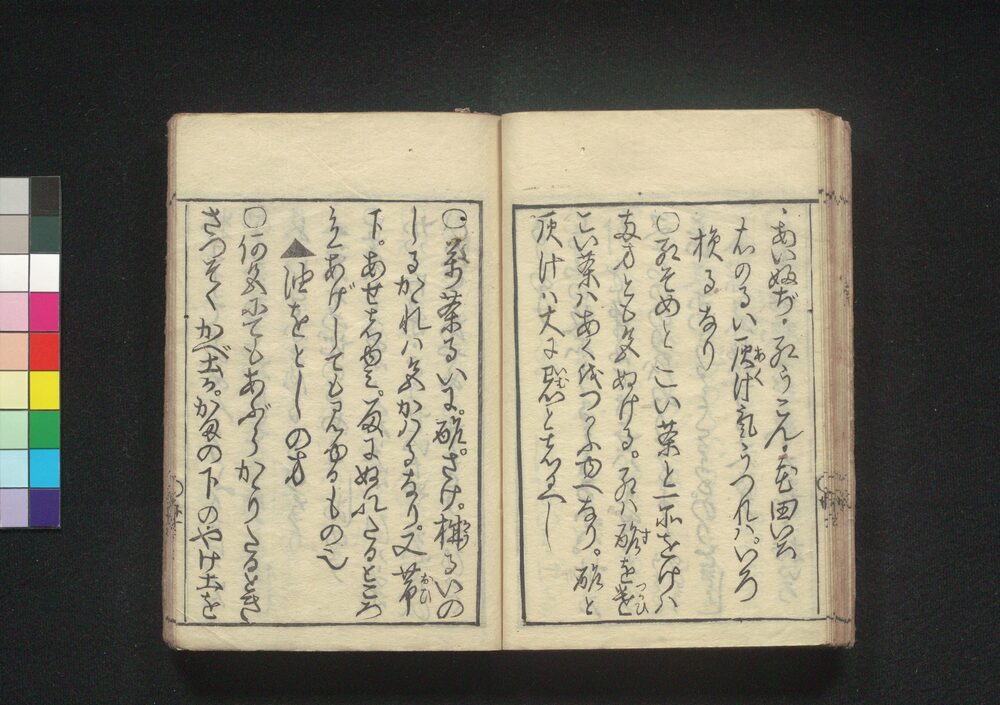 ・あいねずみ・紅うこん・花田いろ
右のるい灰汁気うつれハ。いろ
損るなり
○紅そめとこい茶と一所をけハ
両方とも色ぬける。紅ハ酢を遣
こい茶ハあくをつかふゆへなり。酢と
灰汁ハ大に忌と知へし
○茶るいに。酢。さけ。梅るいの
しるかゝれハ色かハるなり。又帯
下。あせしみ。雨にぬれたるところ
そめあげしても見ゆるもの也
▲油をとしの方
○何色にてもあぶらかゝりたるとき
さつそくかべ土か。かまの下のやけ土を